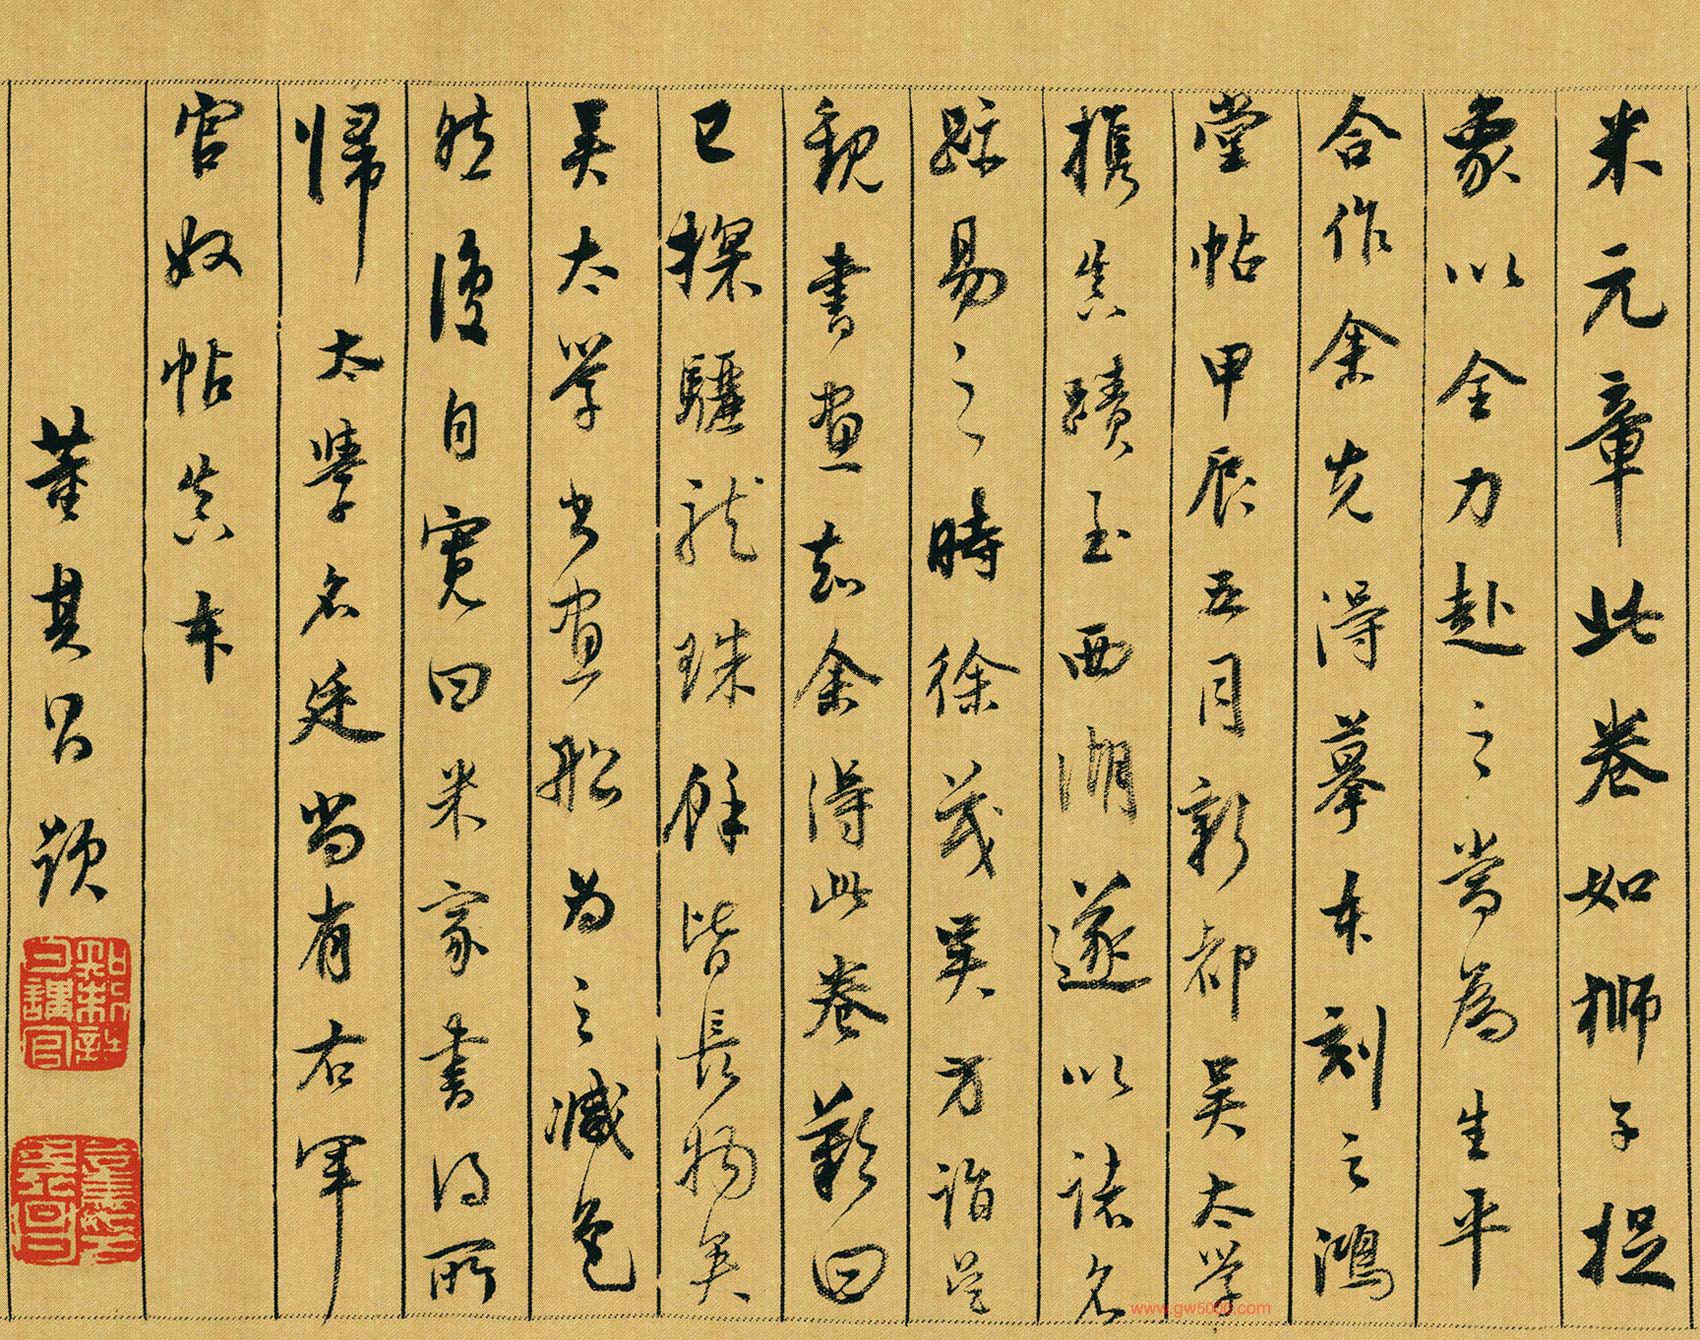 米元章此卷如狮子捉
象以全力赴之當為生平
合作余先得摹本刻之鴻
堂帖甲辰五月新都吴太学
携真蹟至西湖遂以诸名
跡易之時徐茂吴方詣吴
觀書画知余得此卷歎曰
已探驪龙珠餘皆長物矣
吴太学书画船为之減色
然後自寬曰米家書得所
歸太學名廷尚有右軍
官奴帖真本
董其昌題
www.gw500.com